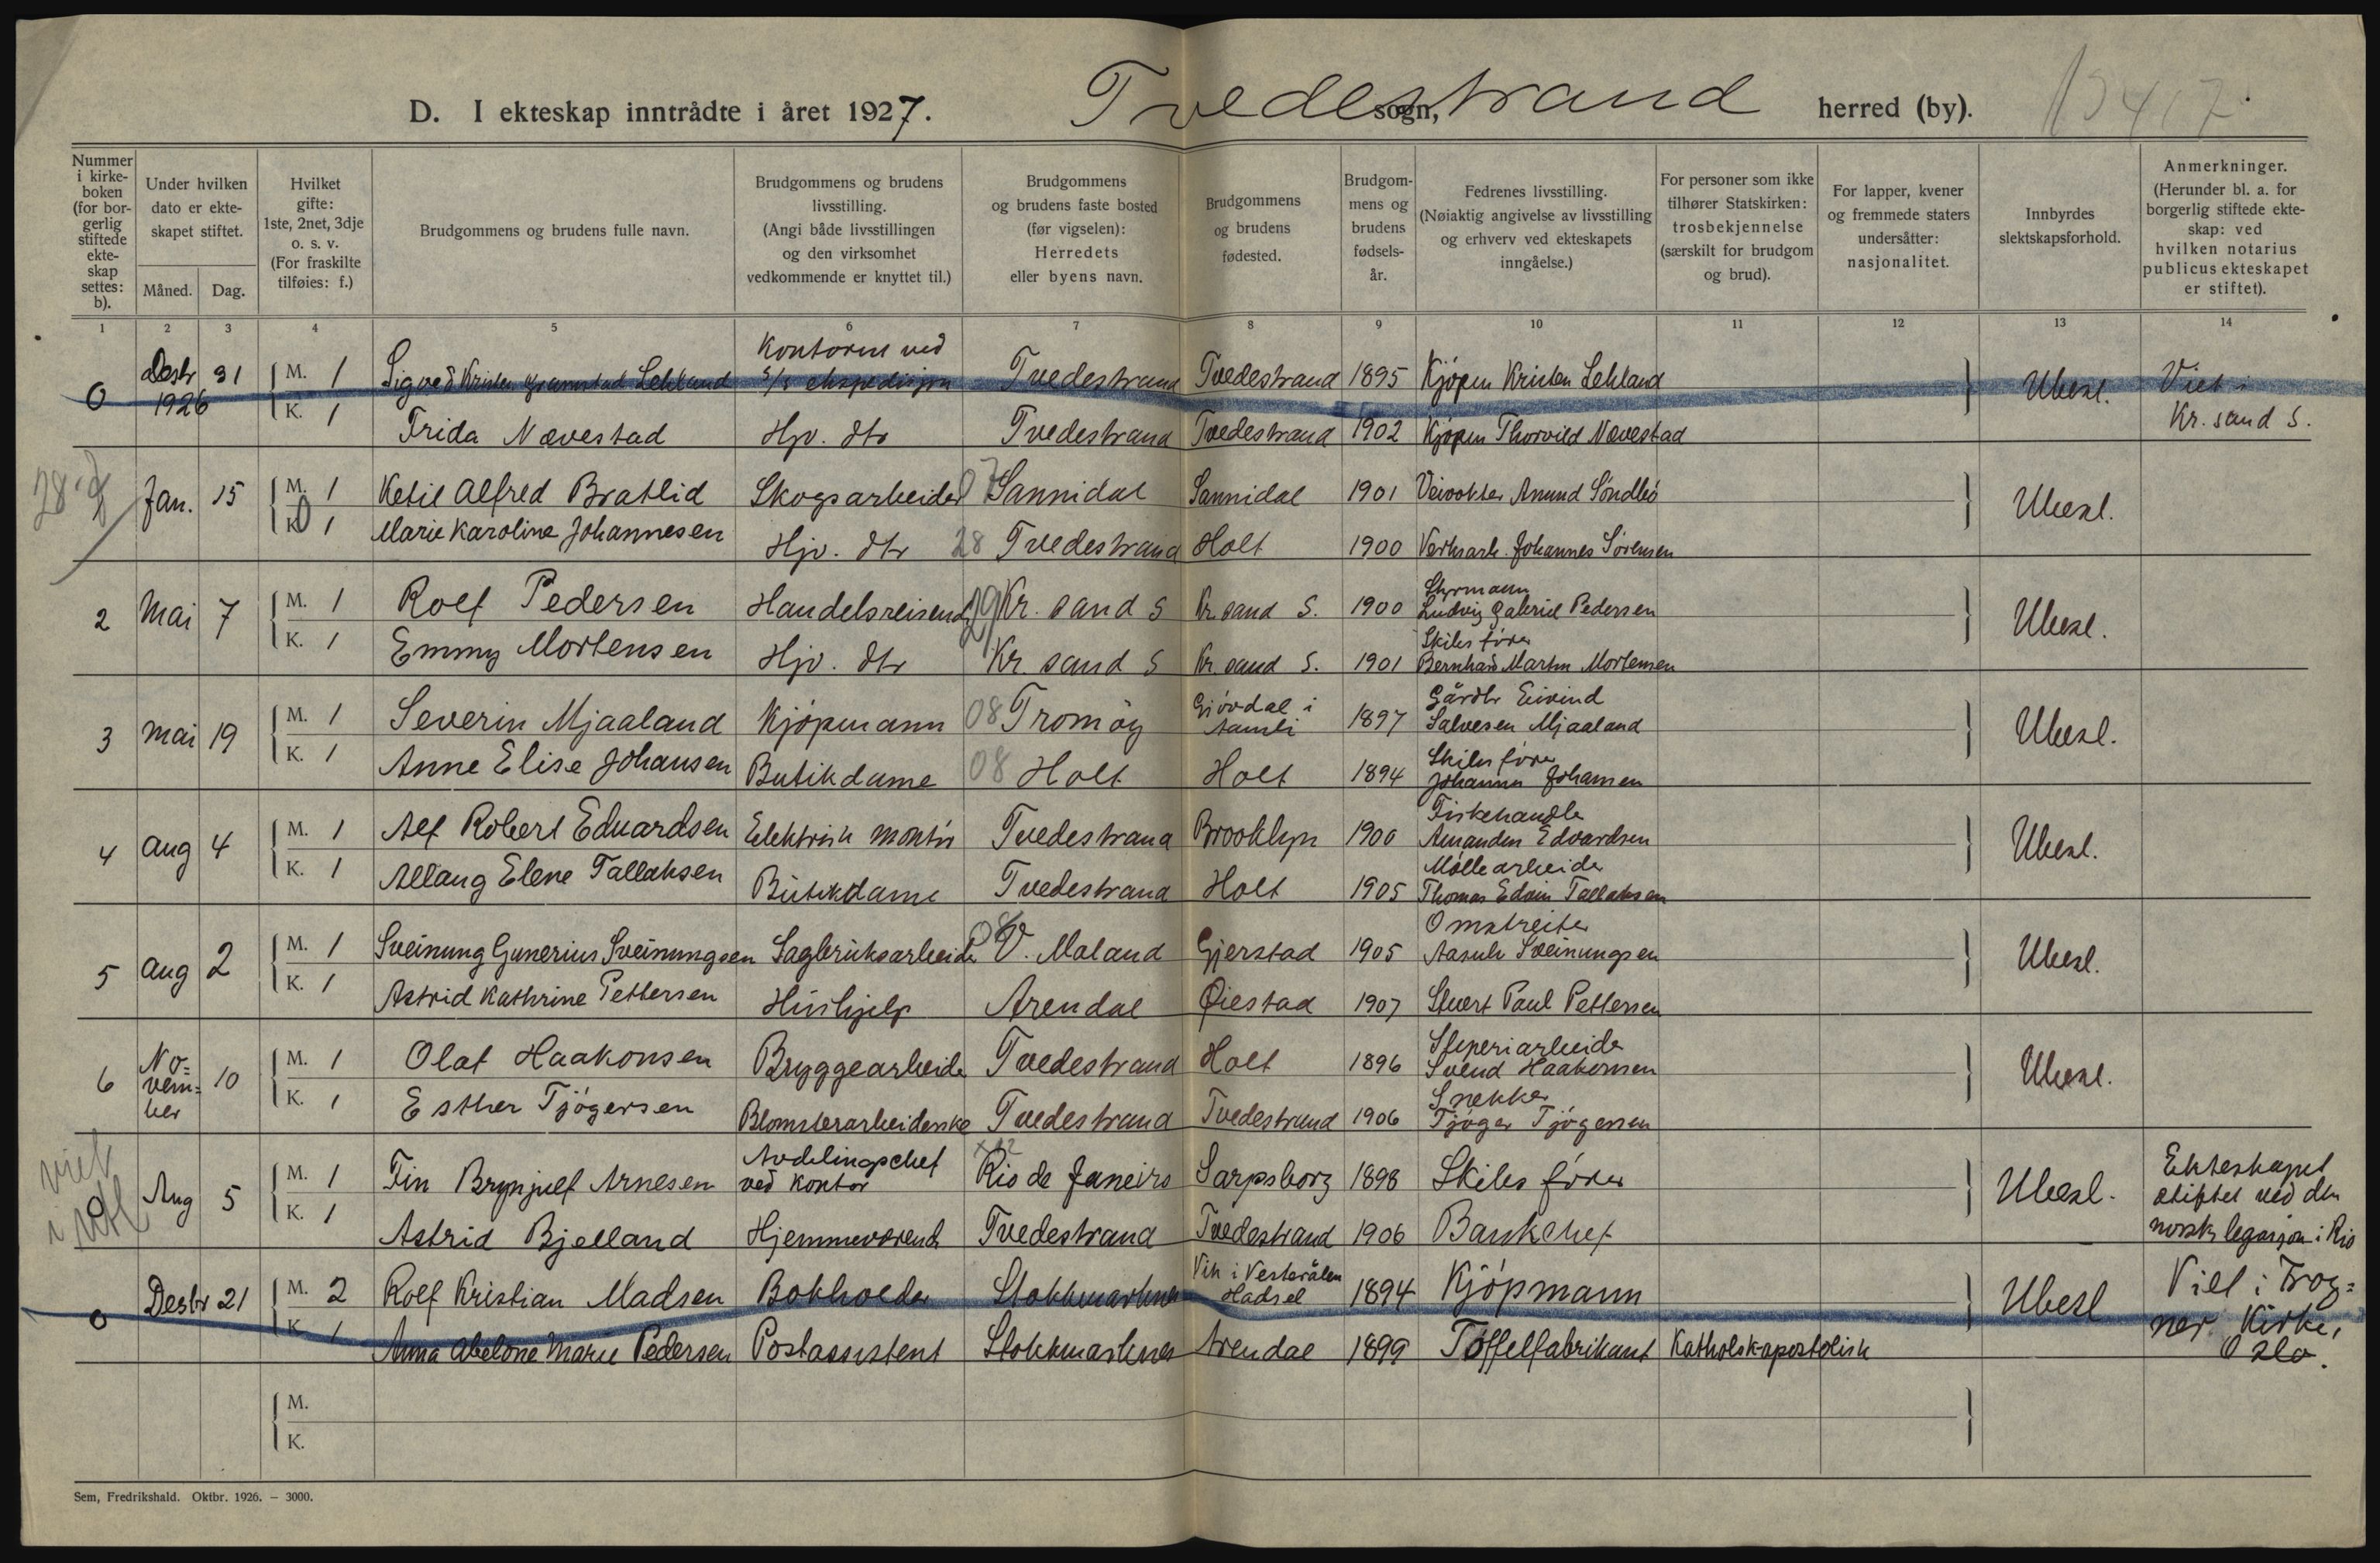 D. I ekteskap inntrådte i året 1927. Tvedestrand sogn, herred (by).
Nummer i kirkeboken (for borgerlig stiftede ekteskap settes: b).
Under hvilken dato er ekteskapet stiftet.
Måned. Dag.
Hvilket gifte: 1ste, 2net, 3dje o. s. v. (For fraskilte tilføies: f.)
Brudgommens og brudens fulle navn.
Brudgommens og brudens livsstilling. (Angi både livsstillingen og den virksomhet vedkommende er knyttet til.)
Brudgommens og brudens faste bosted (før vigselen): Herredets eller byens navn.
Brudgommens og brudens fødested.
Brudgommens og brudens fødselsår.
Fedrenes livsstilling. (Nøiaktig angivelse av livsstilling og erhverv ved ekteskapets inngåelse.)
For personer som ikke tilhører Statskirken: trosbekjennelse (særskilt for brudgom og brud).
For lapper, kvener og fremmede staters undersåtter: nasjonalitet.
Innbyrdes slektskapsforhold.
Anmerkninger. (Herunder bl. a. for borgerlig stiftede ekteskap: ved hvilken notarius publicus ekteskapet er stiftet).
1 2 3 4 5 6 7 8 9 10 11 12 13 14
0 Desbr 1926 31 M. 1 Sigved Kristen Lehland Kontorist ved s/s ekspedisjon Tvedestrand Tvedestrand 1895 Kjøpm Kristen Lehland Ubesl. Viet i
K. 1 Frida Nævestad Hjv. dtr Tvedestrand Tvedestrand 1902 Kjøpm Thorvild Nævestad Kr. sand S.
Jan. 15 M. 1 Ketil Alfred Bratlid Skogsarbeider 07 Sannidal Sannidal 1901 Veivokter Anund Søndbø Ubesl.
K. 1 Marie Karoline Johannesen Hjv. dtr 28 Tvedestrand Holt 1900 Verksarb. Johannes Sørensen
2 Mai 7 M. 1 Rolf Pedersen Handelsreisende 29 Kr. sand S Kr. sand S. 1900 Styrmann Ludvig Gabriel Pedersen Ubesl.
K. 1 Emmy Mortensen Hjv. dtr Kr. sand S Kr. sand S. 1901 Skibsfører Bernhard Martin Mortensen
3 Mai 19 M. 1 Severin Mjaaland Kjöpmann 08 Tromöy Gjövdal i Aamli 1897 Gårdbr Eivind Salvesen Mjaaland Ubesl.
K. 1 Anne Elise Johansen Butikdame 08 Holt Holt 1894 Skibsfører Johannes Johansen
4 Aug 4 M. 1 Alf Robert Edvardsen Elektrisk montör Tvedestrand Brooklyn 1900 Fiskehandler Amandus Edvardsen Ubesl.
K. 1 Allaug Elene Tallaksen Butikdame Tvedestrand Holt 1905 Møllearbeider Thomas Edvin Tallaksen
5 Aug 2 M. 1 Sveinung Gunerius Sveinungsen Sagbruksarbeider 08 V. Moland Gjerstad 1905 Omstreifer Aasulv Sveinungsen Ubesl.
K. 1 Astrid Kathrine Pettersen Hushjelp Arendal Øiestad 1907 Stuert Paul Pettersen
6 November 10 M. 1 Olaf Haakonsen Bryggearbeider Tvedestrand Holt 1896 Støperiarbeider Svend Haakonsen Ubesl.
K. 1 Esther Tjögersen Blomsterarbeiderske Tvedestrand Tvedestrand 1906 Snekker Tjöger Tjögersen
viet i utl
0 Aug 5 M. 1 Fin Brynjulf Arnesen Avdelingschef ved kontor Rio de Janeiro Sarpsborg 1898 Skibsfører Ubesl. Ekteskapet stiftet ved den
K. 1 Astrid Bjelland Hjemmeværende Tvedestrand Tvedestrand 1906 Bankchef norske legasjon i Rio
0 Desbr 21 M. 2 Rolf Kristian Madsen Bokholder Stokkmarknes Vik i Vesterålen Hadsel 1894 Kjöpmann Ubesl Viet i Frog=
K. 1 Anna Abelone Marie Pedersen Postassistent Stokkmarknes Arendal 1899 Töffelfabrikant Katholsk-apostolisk ner Kirke, Oslo.
M.
K.
Sem, Fredrikshald. Oktbr. 1926. – 3000.